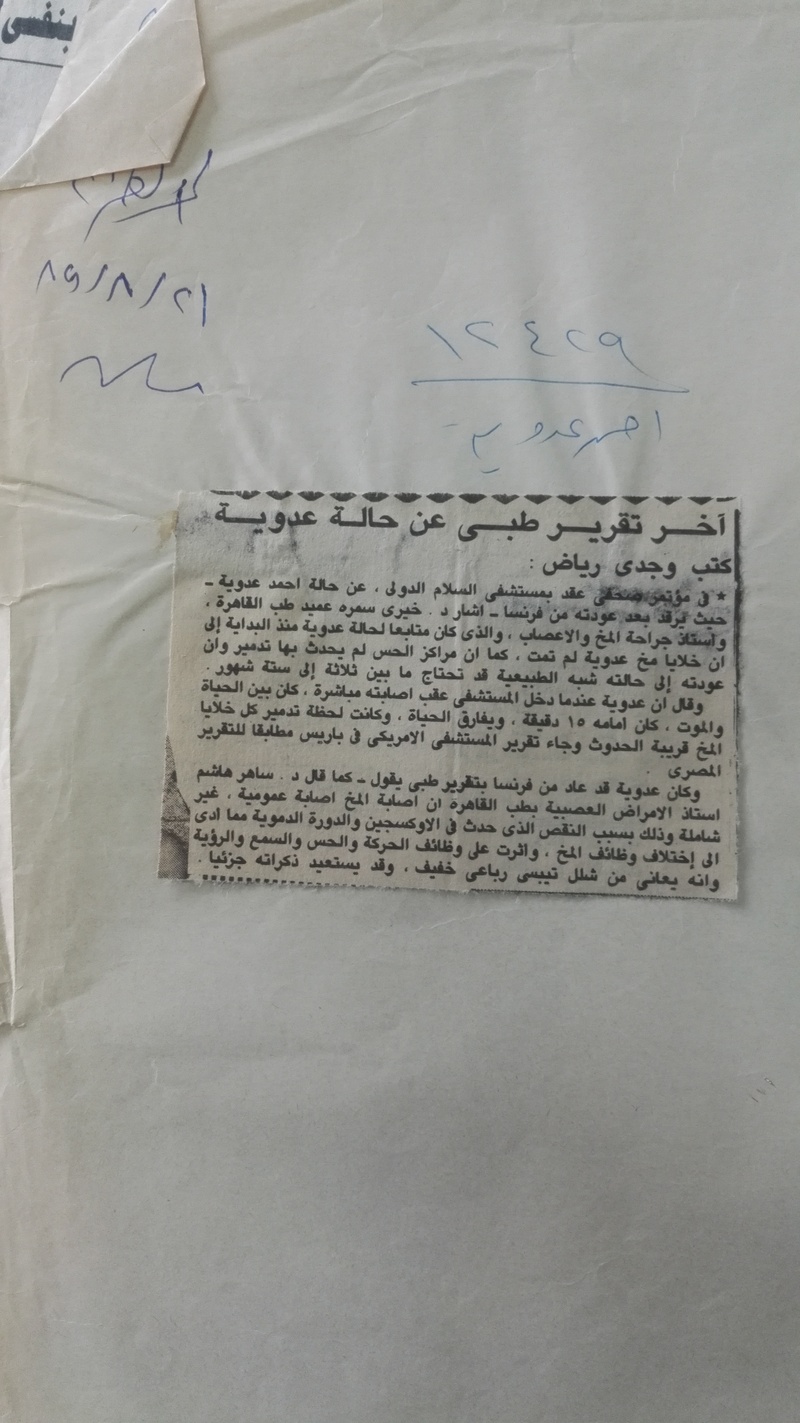 بنفسي
٨٩/٨/٢١
١٢٤٢٩
احمد عدوية
آخــر تقريــر طبــى عن حالــة عدويــة
كتب وجدى رياض :
★ فى مؤتمر صحفى عقد بمستشفى السلام الدولى ، عن حالة احمد عدوية ـ
حيث يرقد بعد عودته من فرنسا ـ اشار د . خيرى سمره عميد طب القاهرة ،
واستاذ جراحة المخ والاعصاب ، والذى كان متابعا لحالة عدوية منذ البداية إلى
ان خلايا مخ عدوية لم تمت ، كما ان مراكز الحس لم يحدث بها تدمير وان
عودته إلى حالته شبه الطبيعية قد تحتاج ما بين ثلاثة إلى ستة شهور .
وقال ان عدوية عندما دخل المستشفى عقب اصابته مباشرة ، كان بين الحياة
والموت ، كان امامه ١٥ دقيقة ، ويفارق الحياة ، وكانت لحظة تدمير كل خلايا
المخ قريبة الحدوث وجاء تقرير المستشفى الامريكى فى باريس مطابقا للتقرير
المصرى .
وكان عدوية قد عاد من فرنسا بتقرير طبى يقول ـ كما قال د . ساهر هاشم
استاذ الامراض العصبية بطب القاهرة ان اصابة المخ اصابة عمومية ، غير
شاملة وذلك بسبب النقص الذى حدث فى الاوكسجين والدورة الدموية مما ادى
الى إختلاف وظائف المخ ، واثرت على وظائف الحركة والحس والسمع والرؤية
وانه يعانى من شلل تيبسى رباعى خفيف ، وقد يستعيد ذكراته جزئيا .